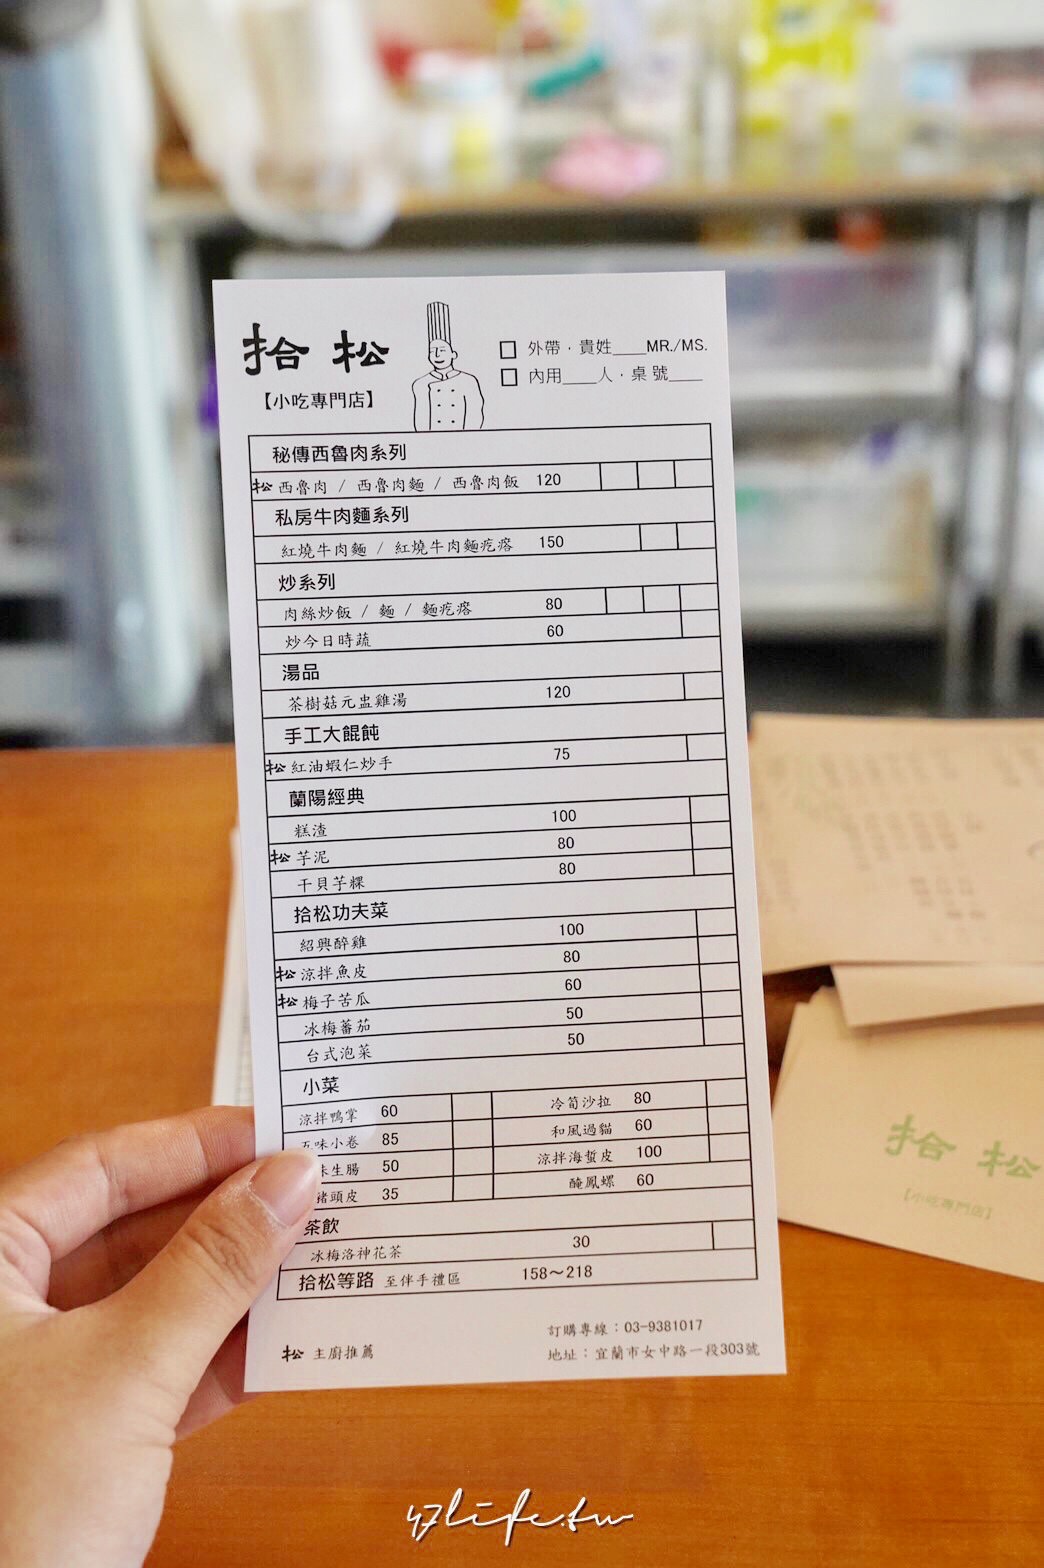 拾松
【小吃專門店】
外帶．貴姓____MR./MS.
內用____人．桌號____
秘傳西魯肉系列
松 西魯肉 / 西魯肉麵 / 西魯肉飯 120
私房牛肉麵系列
紅燒牛肉麵 / 紅燒牛肉麵疙瘩 150
炒系列
肉絲炒飯 / 麵 / 麵疙瘩 80
炒今日時蔬 60
湯品
茶樹菇元盅雞湯 120
手工大餛飩
松 紅油蝦仁炒手 75
蘭陽經典
糕渣 100
松 芋泥 80
干貝芋粿 80
拾松功夫菜
紹興醉雞 100
松 涼拌魚皮 80
松 梅子苦瓜 60
冰梅蕃茄 50
台式泡菜 50
小菜
涼拌鴨掌 60 冷筍沙拉 80
五味小卷 85 和風過貓 60
味生腸 50 涼拌海蜇皮 100
豬頭皮 35 醃鳳螺 60
茶飲
冰梅洛神花茶 30
拾松等路 至伴手禮區 158～218
松 主廚推薦
訂購專線：03-9381017
地址：宜蘭市女中路一段303號
拾松
【小吃專門店】
47life.tw